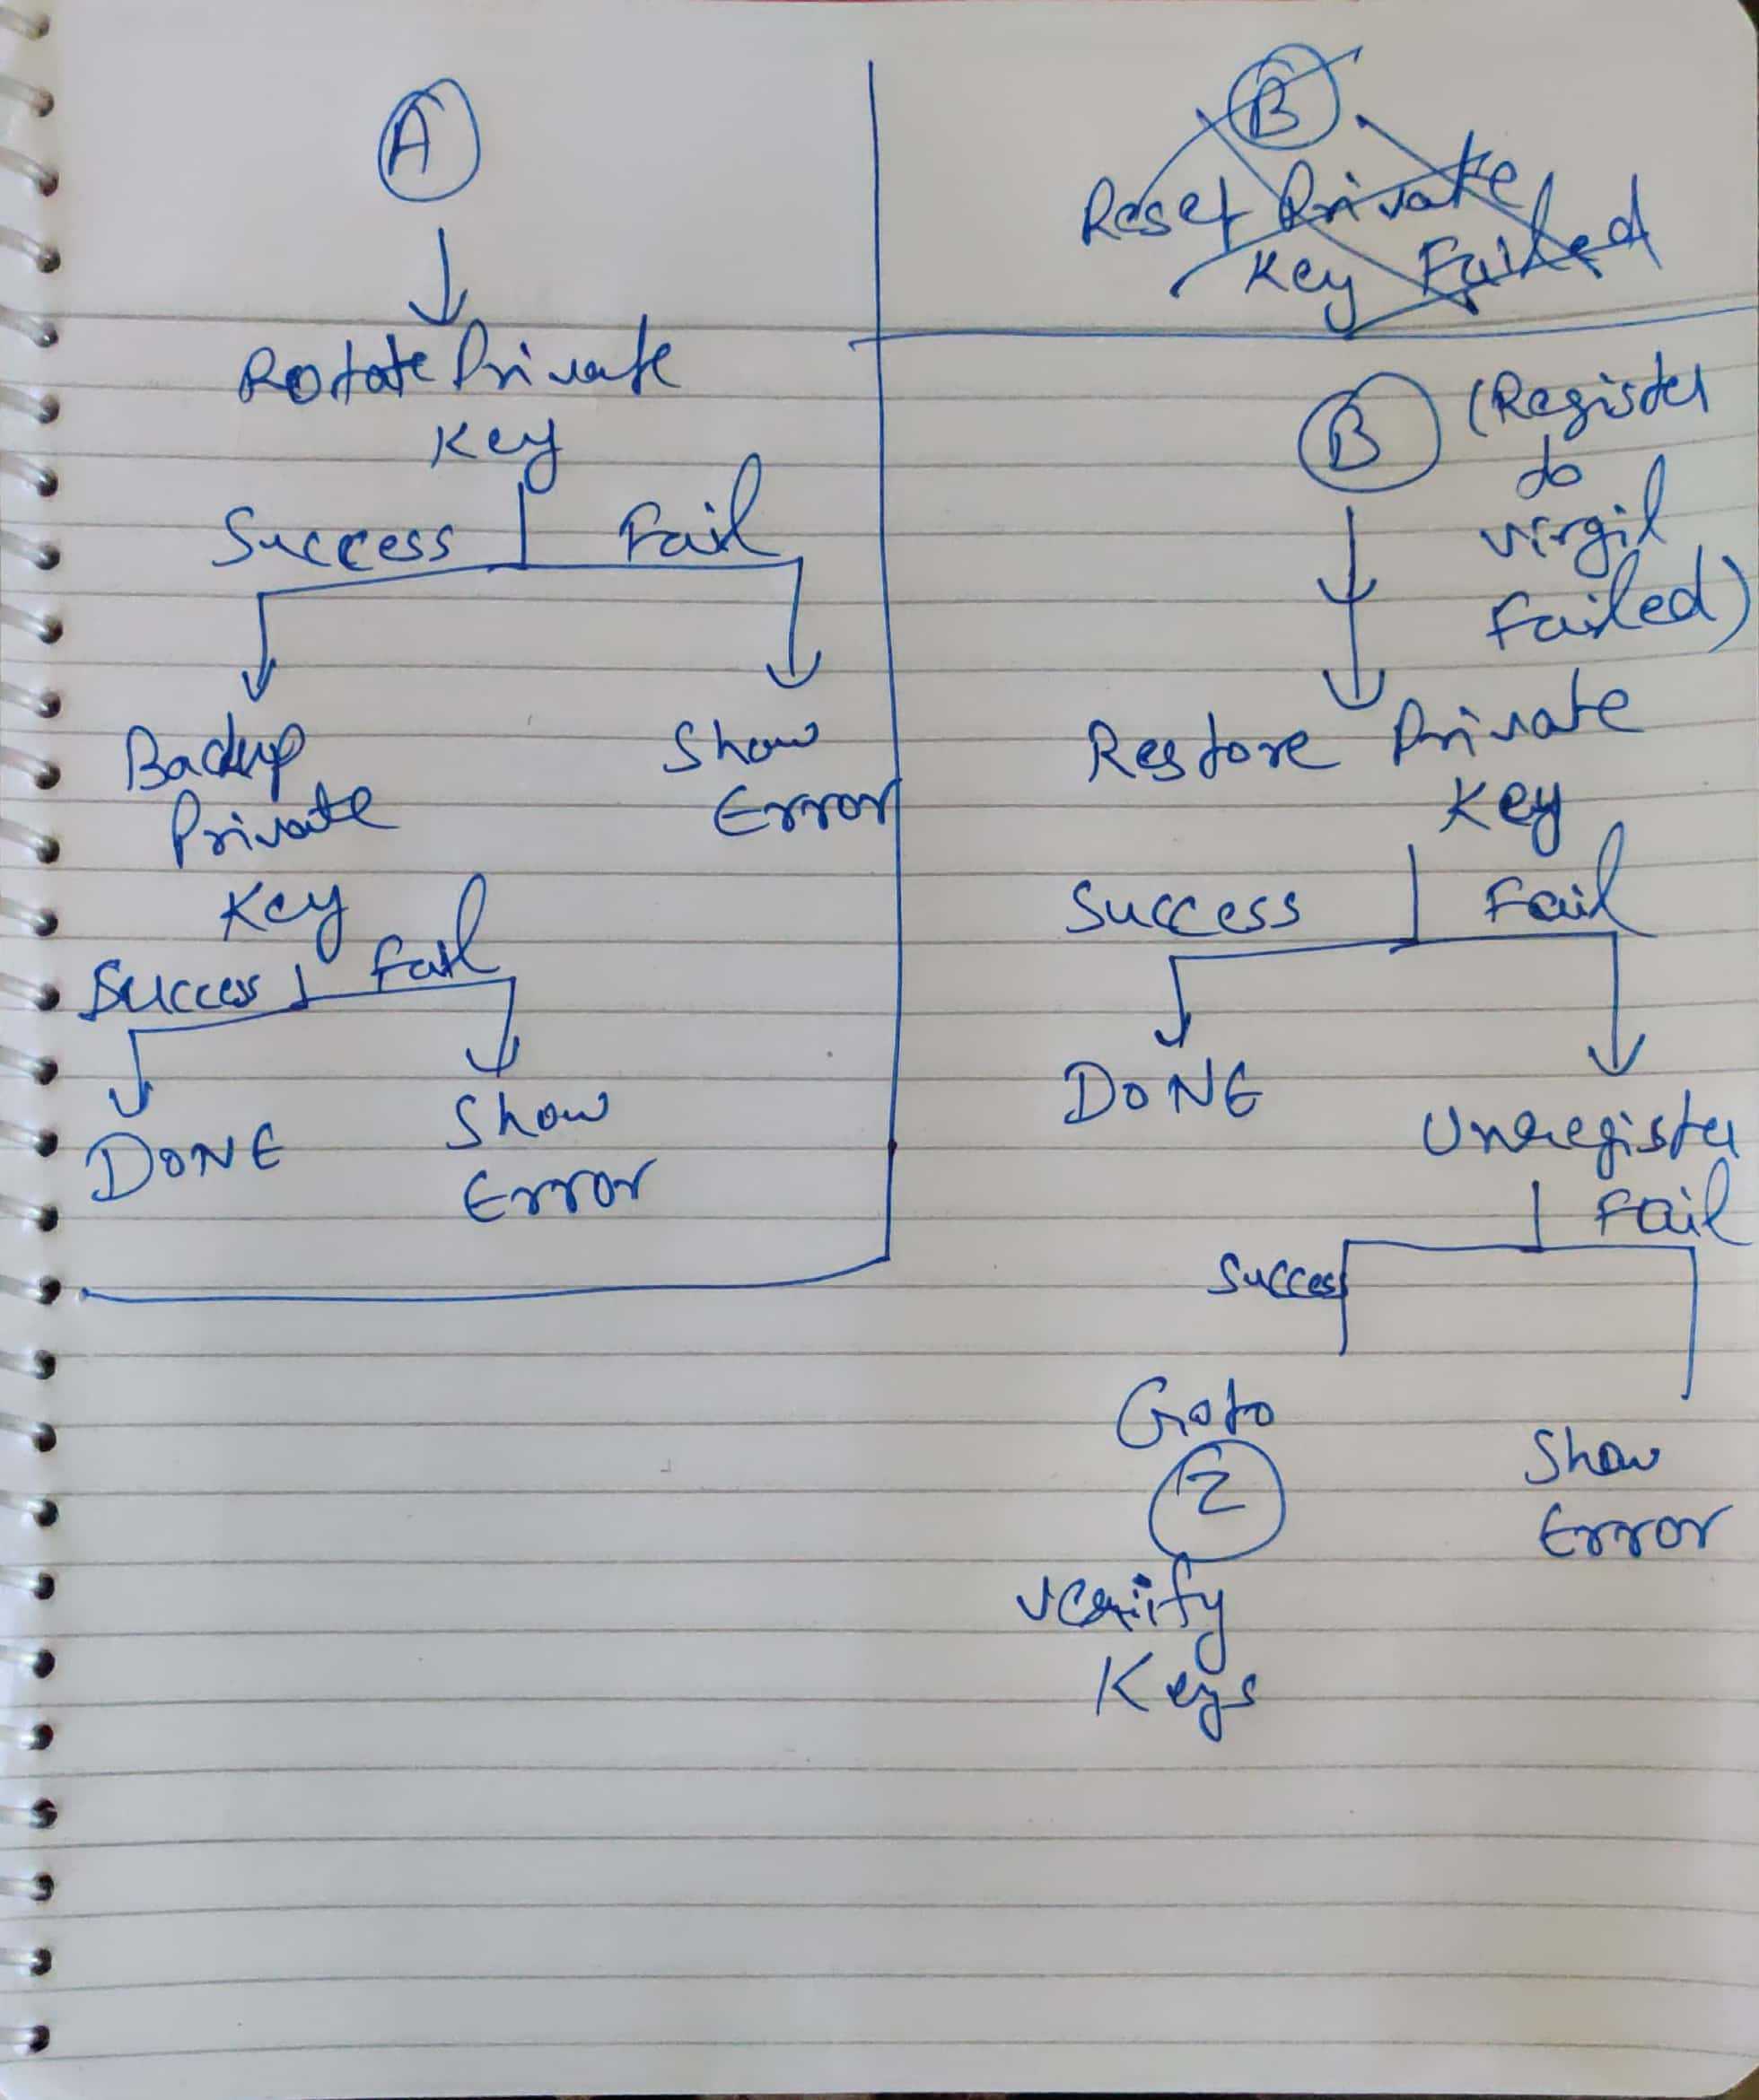 A
Rotate Private
Key
Success Fail
Backup
Private
Key
Show
Error
Succes Fail
DONE
Show
Error
B
Reset Private
Key Failed
B
(Register
to
virgil
Failed)
Restore Private
Key
Success Fail
DONE
Unregister
Fail
Success
Goto
2
verify
Keys
Show
Error